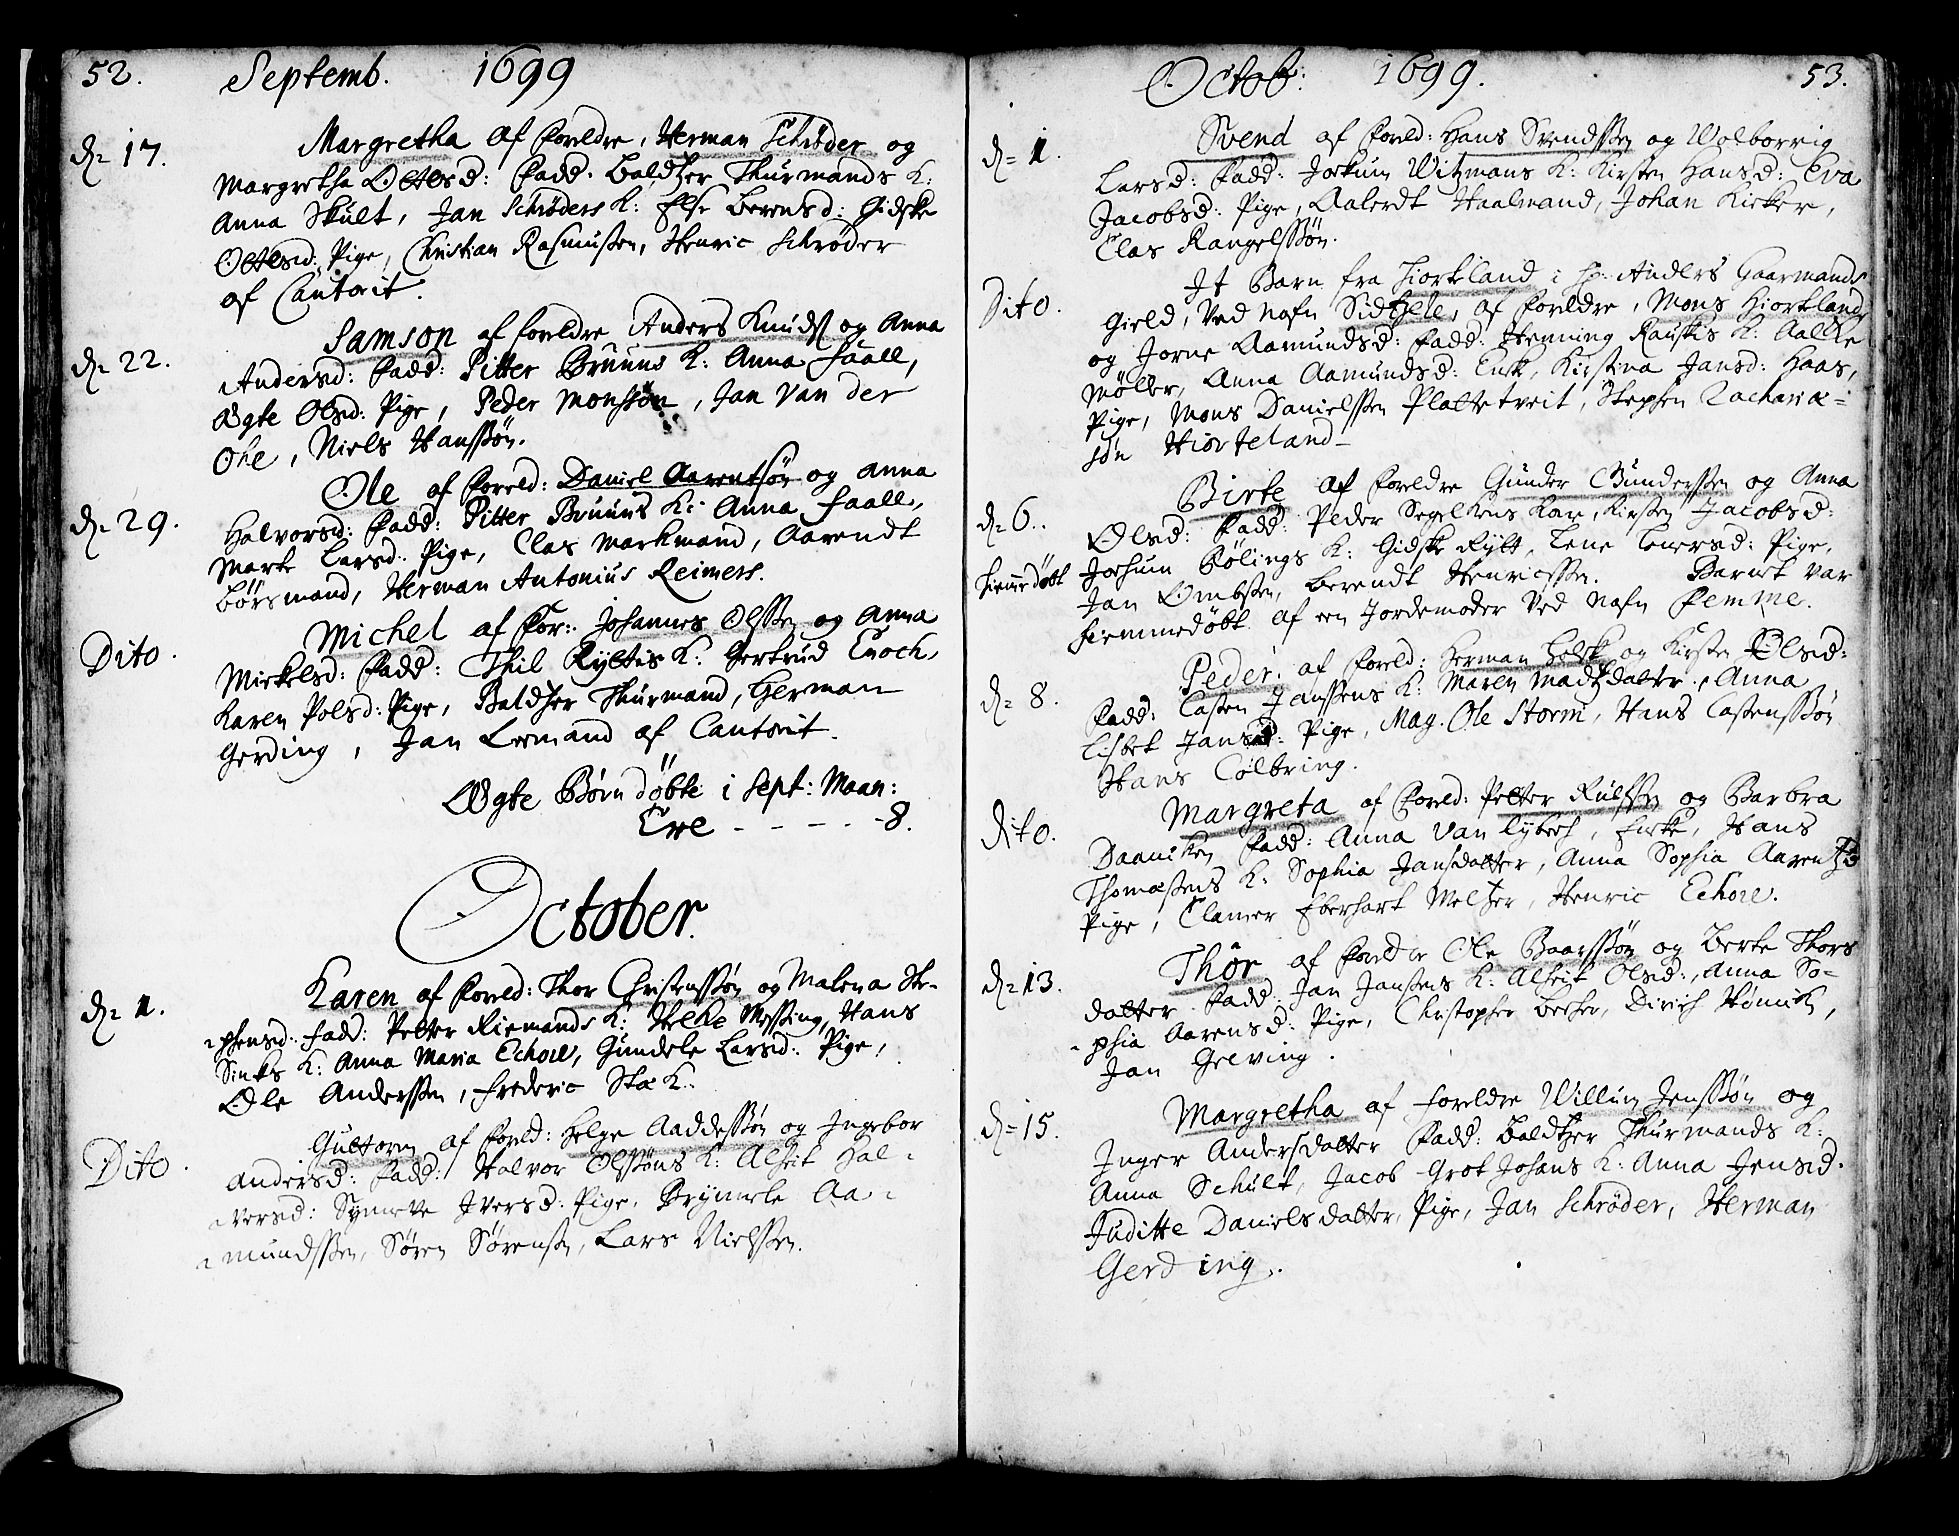 52. Septemb. 1699
d. 17. Margretha af foreldre, Herman Schrøder og
Margretha Ottesd: Fadd. Baldtzer Thurmands K:
Anna Skult, Jan Schrøders K: Else Berensd: Gidske
Ottesd: Pige, Christian Rasmussen, Henric Schrøder
af Cantorit.
d. 22. Samson af foreldre Anders Knuds og Anna
Andersd: Fadd: Pitter Bruuns K: Anna Faall,
Ægte Olsd: Pige, Peder Monssøn, Jan Van der
Ohe, Niels Hanssøn.
d. 29. Ole af foreld: Daniel Aarentsøn og Anna
Halvorsd: Fadd: Pitter Bruuns K: Anna Faall,
Marte Larsd: Pige, Clas Markmand, Aarendt
Børsmand, Herman Antonius Reimers.
Dito. Michel af For: Johannes Olssen og Anna
Mickelsd: Fadd: Thil Ryltis K: Gertrud Enoch,
Karen Polsd: Pige, Baldtzer Thurmand, Herman
Gerding, Jan Lormand af Cantorit.
Ægte Børn døbte i Sept: Maan:
Ere - - - - - 8.
October.
d. 1. Karen af Foreld: Thor Christenssøn og Malena Ste-
phensd: Fadd: Petter Riemands K: Helke Messing, Hans
Sinks K: Anna Maria Echore, Gundele Larsd: Pige,
Ole Anderssen, Frederic Stæk.
Dito. Gultoren af Foreld: Helge Aaddessøn og Ingebor
Andersd: Fadd: Halvor Olssøns K: Alheit Hal-
versd: Synneve Iversd: Pige, Brynnele Aa-
mundssen, Søren Sørensen, Lars Nielssen.
Octob: 1699. 53.
d. 1. Svend af Foreld: Hans Svendssen og Wolborrig
Larsd: Fadd: Jochum Witzmans K: Kirsten Hansd: Eva
Jacobsd: Pige, Aalerdt Haalmand, Johan Kicker,
Clas Rangelssøn.
Dito. It Barn fra Hiorkland i Hr. Anders Gaarmands
Gield, Ved Nafn Sidtzele, af Foreldre, Mons Hiorkland
og Jorne Aamundsd: Fadd: Henning Rauskis K: Aalke
Møller, Anna Aamundsd: Enke, Kirstina Jansd: Haas,
Pige, Mons Danielssen Plattetveit, Stephen Zacharia-
søn Hiorteland
d. 6. Birte af Foreldre Gunder Gunderssen og Anna
Olsd: Fadd: Peder Segelkens Kar, Kirsten Jacobsd:
hiemmedøbt Jochum Bølings K: Gidske Rylt, Lene Leuersd: Pige,
Jan Ombsen, Berendt Henricssen. Barnet var
hiemmedøbt af een Jordemoder Ved Nafn Femme.
d. 8. Peder. af Foreld: Herman Holst og Kirsten Olsd:
Fadd: Casten Janssens K: Maren Madtzdatter, Anna
Lisbet Jansd: Pige, Mag. Ole Storm, Hans Castenssøn
Hans Cølbring.
Dito. Margreta af Foreld: Petter Rulfssen og Barbra
Daanisken Fadd: Anna van Lybech, Enke, Hans
Thomæsens K: Sophia Jansdatter, Anna Sophia Aarentzd
Pige, Clamer Eberhart Meltzer, Henric Echore.
d. 13. Thor af Foreldre Ole Baarssøn og Berte Thors
datter Fadd: Jan Jansens K: Alheit Olsd:, Anna So-
phia Aarensd: Pige, Christopher Becher, Dirich Hømick,
Jan Gelving.
d. 15. Margretha af foreldre Willum Jenssøn og
Inger Andersdatter Fadd: Baldtzer Thurmands K:
Anna Schult, Jacob Grot Johans K: Anna Jensd.
Juditte Danielsdatter, Pige, Jan Schrøder, Herman
Gerding.